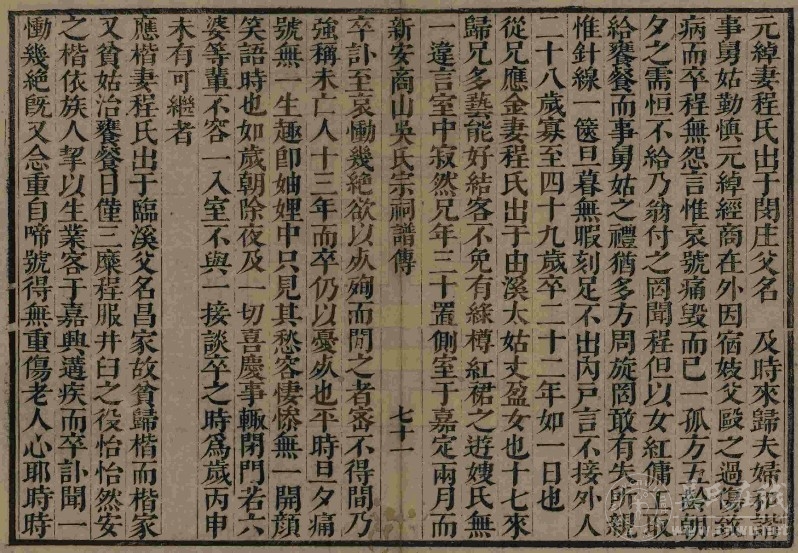 元綽妻程氏出于閔庄父名　及時來歸夫婦和諧
事舅姑勤慎元綽經商在外因宿妓父毆之過傷致
病而卒程無怨言惟哀號痛毀而已一孤方五齡朝
夕之需恒不給乃翁付之罔聞程但以女紅傭工取
給饔餐而事舅姑之禮猶多方周旋罔敢有失所親
惟針線一篋旦暮無暇刻足不出內戶言不接外人
二十八歲寡至四十九歲卒二十二年如一日也
從兄應金妻程氏出于由溪太姑丈盈女也十七來
歸兄多藝能好結客不免有綠樽紅裙之遊嫂氏無
一違言室中寂然兄年三十置側室于嘉定兩月而
新安商山吳氏宗祠譜傳　七十一
卒訃至哀慟幾絕欲以死殉而閒之者審不得間乃
強稱未亡人十三年而卒仍以憂死也平時旦夕痛
號無一生趣即妯娌中只見其愁容悽慘無一開顏
笑語時也如歲朝除夜及一切喜慶事輒閉門若六
婆等輩不容一入室不與一接談卒之時爲歲丙申
未有可繼者
應楷妻程氏出于臨溪父名昌家故貧歸楷而楷家
又貧姑治饔餐日僅三糜程服井臼之役怡怡然安
之楷依族人挈以生業客于嘉興遘疾而卒訃聞一
慟幾絕旣又念重自啼號得無重傷老人心耶時時